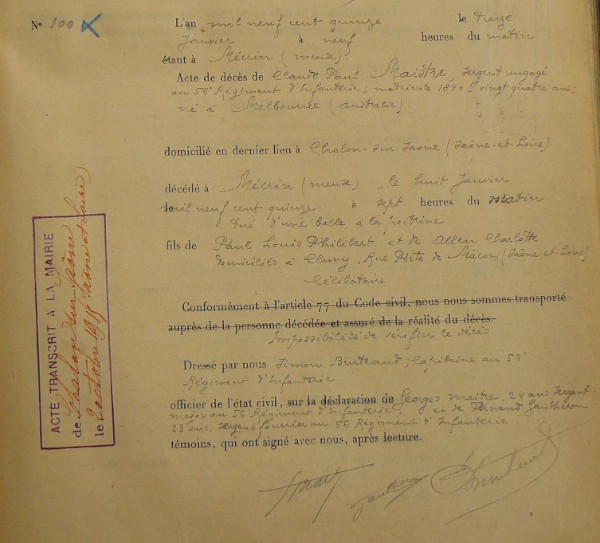 N° 100
L'an mil neuf cent quinze le treize
Janvier à neuf heures du matin
étant à Mécrin (meuse)
Acte de décès de Claude Paul Maistre, sergent engagé
au 56e Régiment d'Infanterie; matricule vingt quatre ans;
né à Melbourne (australie)
domicilié en dernier lieu à Chalon-sur-Saône (Saône-et-Loire)
décédé à Mécrin (meuse), le huit Janvier
mil neuf cent quinze à sept heures du matin
tué d'une balle à la poitrine
fils de Paul Louis Philibert et de Allen Charlotte
domiciliés à Cluny, Rue Porte de Mâcon (Saône-et-Loire)
Célibataire
Conformément à l'article 77 du Code civil, nous nous sommes transporté
auprès de la personne décédée et assuré de la réalité du décès.
Impossibilité de vérifier le décès
Dressé par nous Simon Bertrand, Capitaine au 56e
Régiment d'Infanterie
officier de l'état civil, sur la déclaration de Georges Maitre, 24 ans sergent-
major au 56 Régiment d'Infanterie, et de Fernand Gautheron
23 ans, sergent fourrier au 56 Régiment d'Infanterie
témoins, qui ont signé avec nous, après lecture.
ACTE TRANSCRIT A LA MAIRIE
de Chalon sur Saône
le 2 octobre 1915 (Saône et Loire)